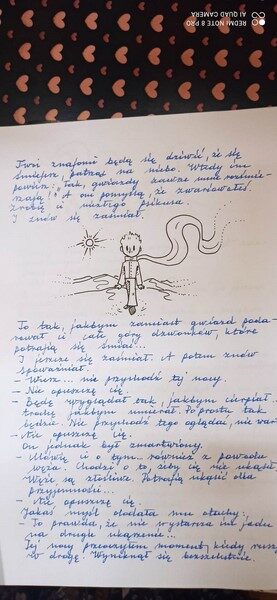 REDMI NOTE 8 PRO
AI QUAD CAMERA
Twoi znajomi będą się dziwić, że się
śmiejesz, patrząc na niebo. Wtedy im
powiesz: „Tak, gwiazdy zawsze mnie rozśmie-
szają!" A oni pomyślą, że zwariowałeś.
Zrobię ci niezłego psikusa.
I znów się zaśmiał.
To tak, jakbym zamiast gwiazd poda-
rował ci całe góry dzwonków, które
potrafią się śmiać...
I jeszcze się zaśmiał. A potem znów
spoważniał.
- Wiesz... nie przychodź tej nocy.
- Nie opuszczę cię.
- Będę wyglądał tak, jakbym cierpiał...
trochę jakbym umierał. Po prostu tak
będzie. Nie przychodź tego oglądać, nie war
- Nie opuszczę cię.
On jednak był zmartwiony.
- Mówię ci o tym... również z powodu
węża. Chodzi o to, żeby cię nie ukąsił.
Węże są złośliwe. Potrafią ukąsić dla
przyjemności...
- Nie opuszczę cię.
Jakaś myśl dodała mu otuchy:
- To prawda, że nie wystarcza im jadu
na drugie ukąszenie...
Tej nocy przeoczyłem moment, kiedy rusz
w drogę. Wymknął się bezszelestnie.